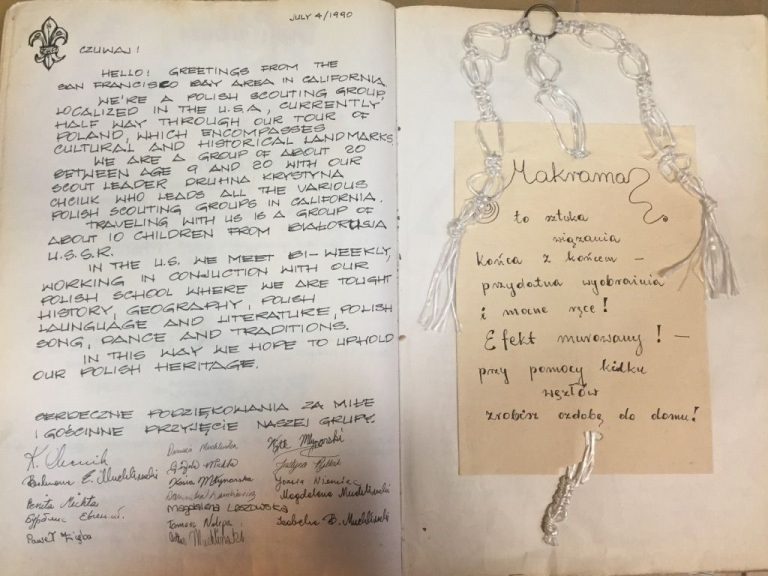 JULY 4/1990
CZUWAJ!
HELLO! GREETINGS FROM THE
SAN FRANCISCO BAY AREA IN CALIFORNIA.
WE'RE A POLISH SCOUTING GROUP,
LOCALIZED IN THE U.S.A, CURRENTLY
HALF WAY THROUGH OUR TOUR OF
POLAND, WHICH ENCOMPASSES
CULTURAL AND HISTORICAL LANDMARKS.
WE ARE A GROUP OF ABOUT 20
BETWEEN AGE 9 AND 20 WITH OUR
SCOUT LEADER DRUHNA KRYSTYNA
CHCIUK WHO LEADS ALL THE VARIOUS
POLISH SCOUTING GROUPS IN CALIFORNIA.
TRAVELING WITH US IS A GROUP OF
ABOUT 10 CHILDREN FROM BIAŁORUSIA
U.S.S.R.
IN THE U.S. WE MEET BI-WEEKLY,
WORKING IN CONJUCTION WITH OUR
POLISH SCHOOL WHERE WE ARE TOUGHT
HISTORY, GEOGRAPHY, POLISH
LANGUAGE AND LITERATURE, POLISH
SONG, DANCE AND TRADITIONS.
IN THIS WAY WE HOPE TO UPHOLD
OUR POLISH HERITAGE.
SERDECZNE PODZIĘKOWANIA ZA MIŁE
I GOŚCINNE PRZYJĘCIE NASZEJ GRUPY.
Magdalena Muchlinski
Magdalena Leszowska
Izabela B. Muchlinski
Paweł Zięba
Makrama
to sztuka
wiązania
końca z końcem –
przydatna wyobraźnia
i mocne ręce!
Efekt murowany! –
przy pomocy kilku
węzłów
zrobisz ozdobę do domu!